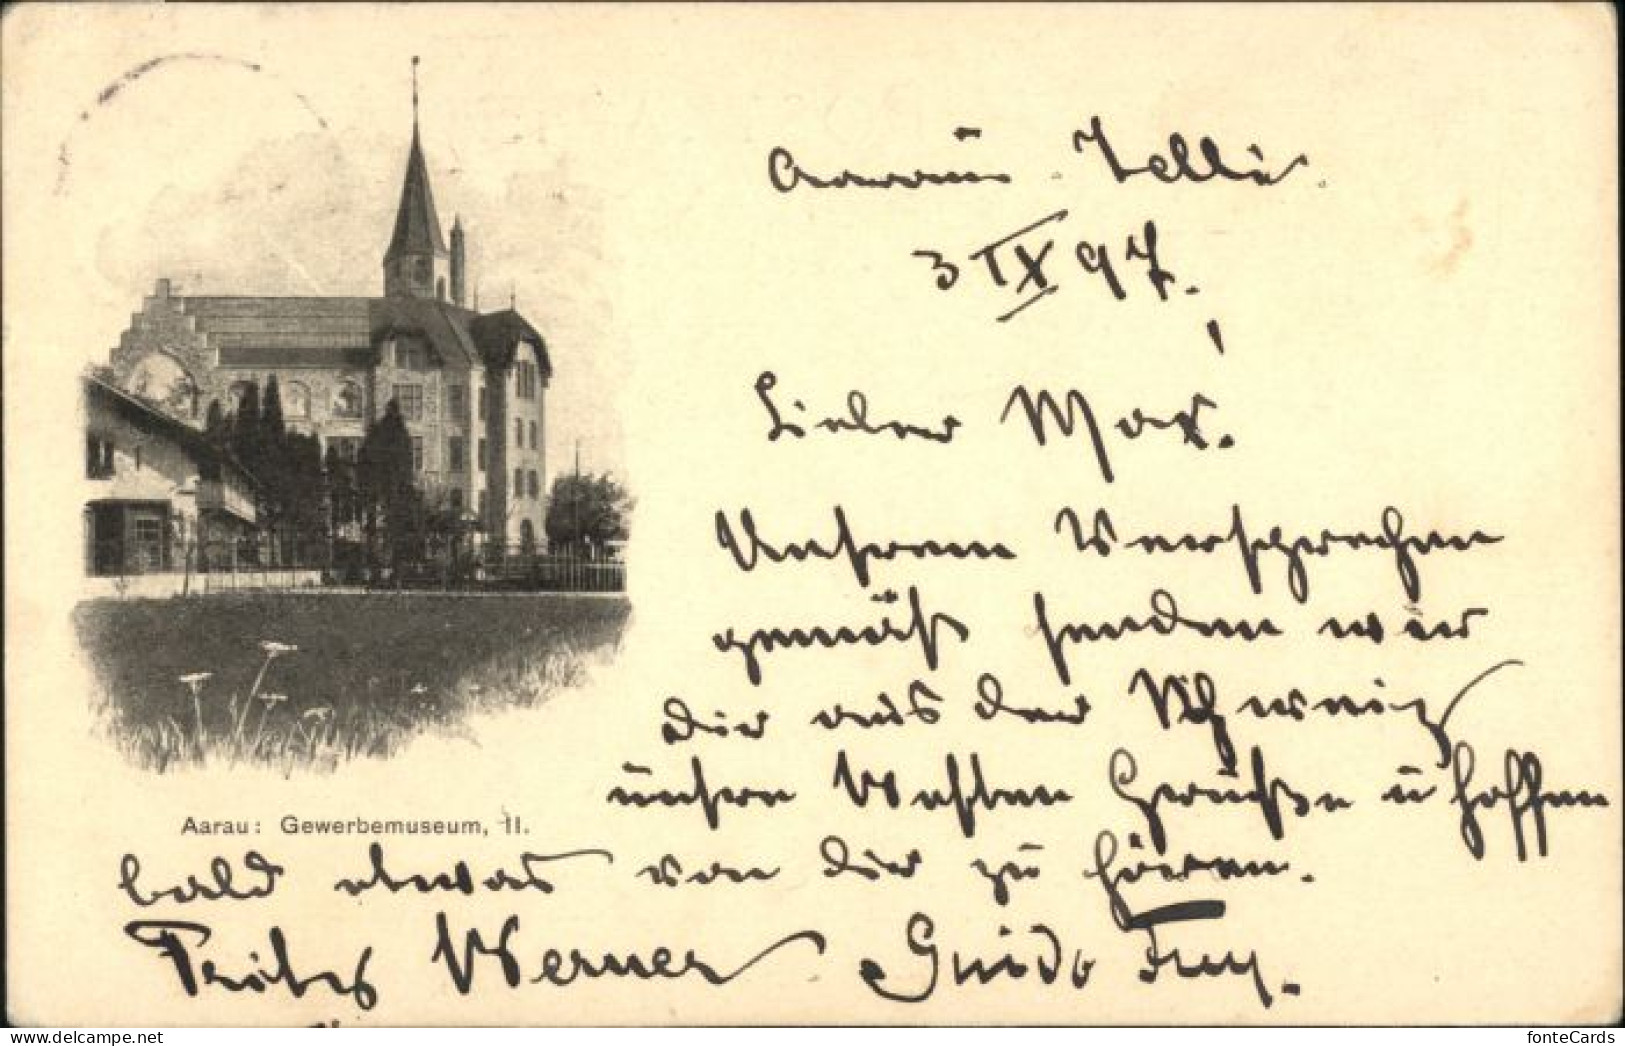 Aarau. Telli.
3 IX 97.
Lieber Max.!
Unsrem Versprechen
gemäß senden wir
Dir aus der Schweiz
unsre besten Grüße u hoffen
Aarau: Gewerbemuseum, II.
bald etwas von Dir zu hören.
Werner Guido Frey.
fonteCards
delcampe.net